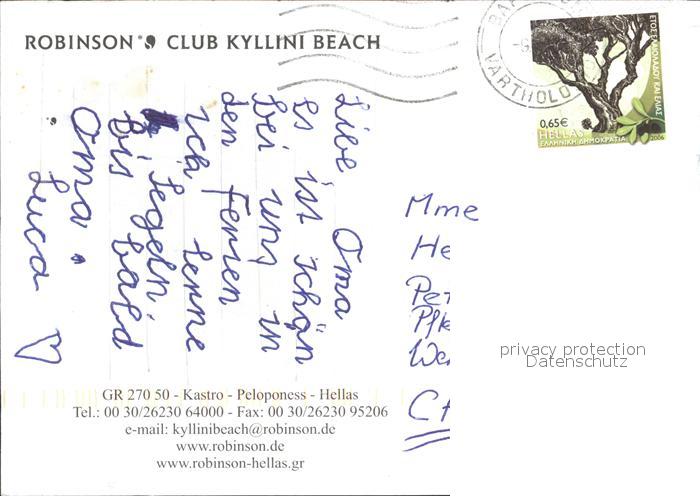 ROBINSON CLUB KYLLINI BEACH
VARTHOLO
0,65€
HELLAS
ΕΛΛΗΝΙΚΗ ΔΗΜΟΚΡΑΤΙΑ
2006
Libe Oma
es ist schön
bei uns in
den Ferien
ich lerne
segeln.
Bis bald
Oma.
Luca
Mme
He
Pet
Pfk
We
CH
privacy protection
Datenschutz
GR 270 50 - Kastro - Peloponess - Hellas
Tel.: 00 30/26230 64000 - Fax: 00 30/26230 95206
e-mail: kyllinibeach@robinson.de
www.robinson.de
www.robinson-hellas.gr